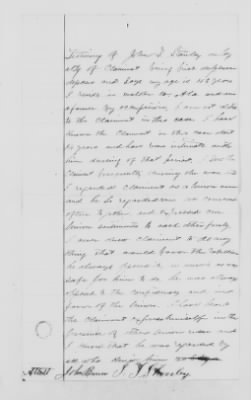 Testimony of John T. Stanley in loy
alty of Claimant being first duly sworn
deposes and says my age is 42 years
I reside in Ala and am
a farmer by occupation, I am not
to the Claimant in this case. I have
known the Claimant in this case about
years and have been intimate with
him during of that period. I saw the
Claimant frequently during the war
I regarded Claimant as a Union man
and he so regarded me we conversed
often together and expressed our
Union sentiments to each other freely
I never knew Claimant to do any
thing that would favor the rebellion
he always as was
safe for him to do. he was always
opposed to the Confederacy and in
favor of the Union. I have heard
the Claimant express himself in the
presence of other Union men and
I know that he was regarded by
all who him
Attest J. T. Stanley